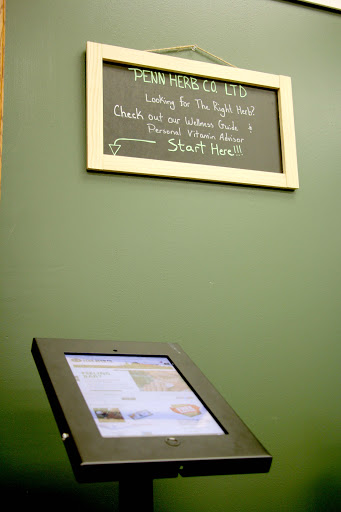 PENN HERB CO. LTD
Looking for The Right Herb?
Check out our Wellness Guide &
Personal Vitamin Advisor
Start Here!!!